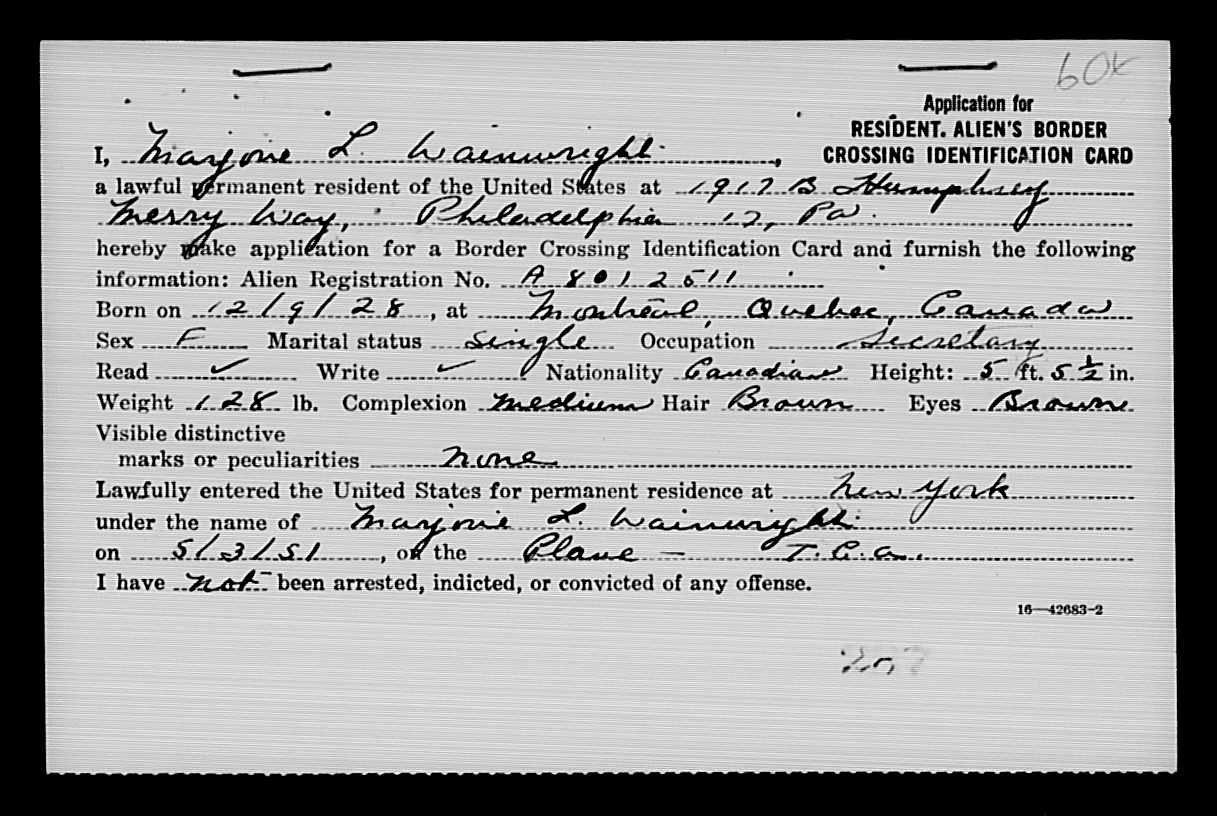 60t
Application for
RESIDENT ALIEN'S BORDER
CROSSING IDENTIFICATION CARD
I, Marjorie L. Wainwright,
a lawful permanent resident of the United States at 1917 B Humphrey
Merry Way, Philadelphia 17, Pa.
hereby make application for a Border Crossing Identification Card and furnish the following
information: Alien Registration No. A 8012511
Born on 12/9/28, at Montreal, Quebec, Canada
Sex F Marital status Single Occupation Secretary
Read ✓ Write ✓ Nationality Canadian Height: 5 ft. 5 ½ in.
Weight 128 lb. Complexion Medium Hair Brown Eyes Brown
Visible distinctive
marks or peculiarities none
Lawfully entered the United States for permanent residence at New York
under the name of Marjorie L. Wainwright
on 5/3/51, on the Plane — T.C.A.
I have not been arrested, indicted, or convicted of any offense.
16—42683-2